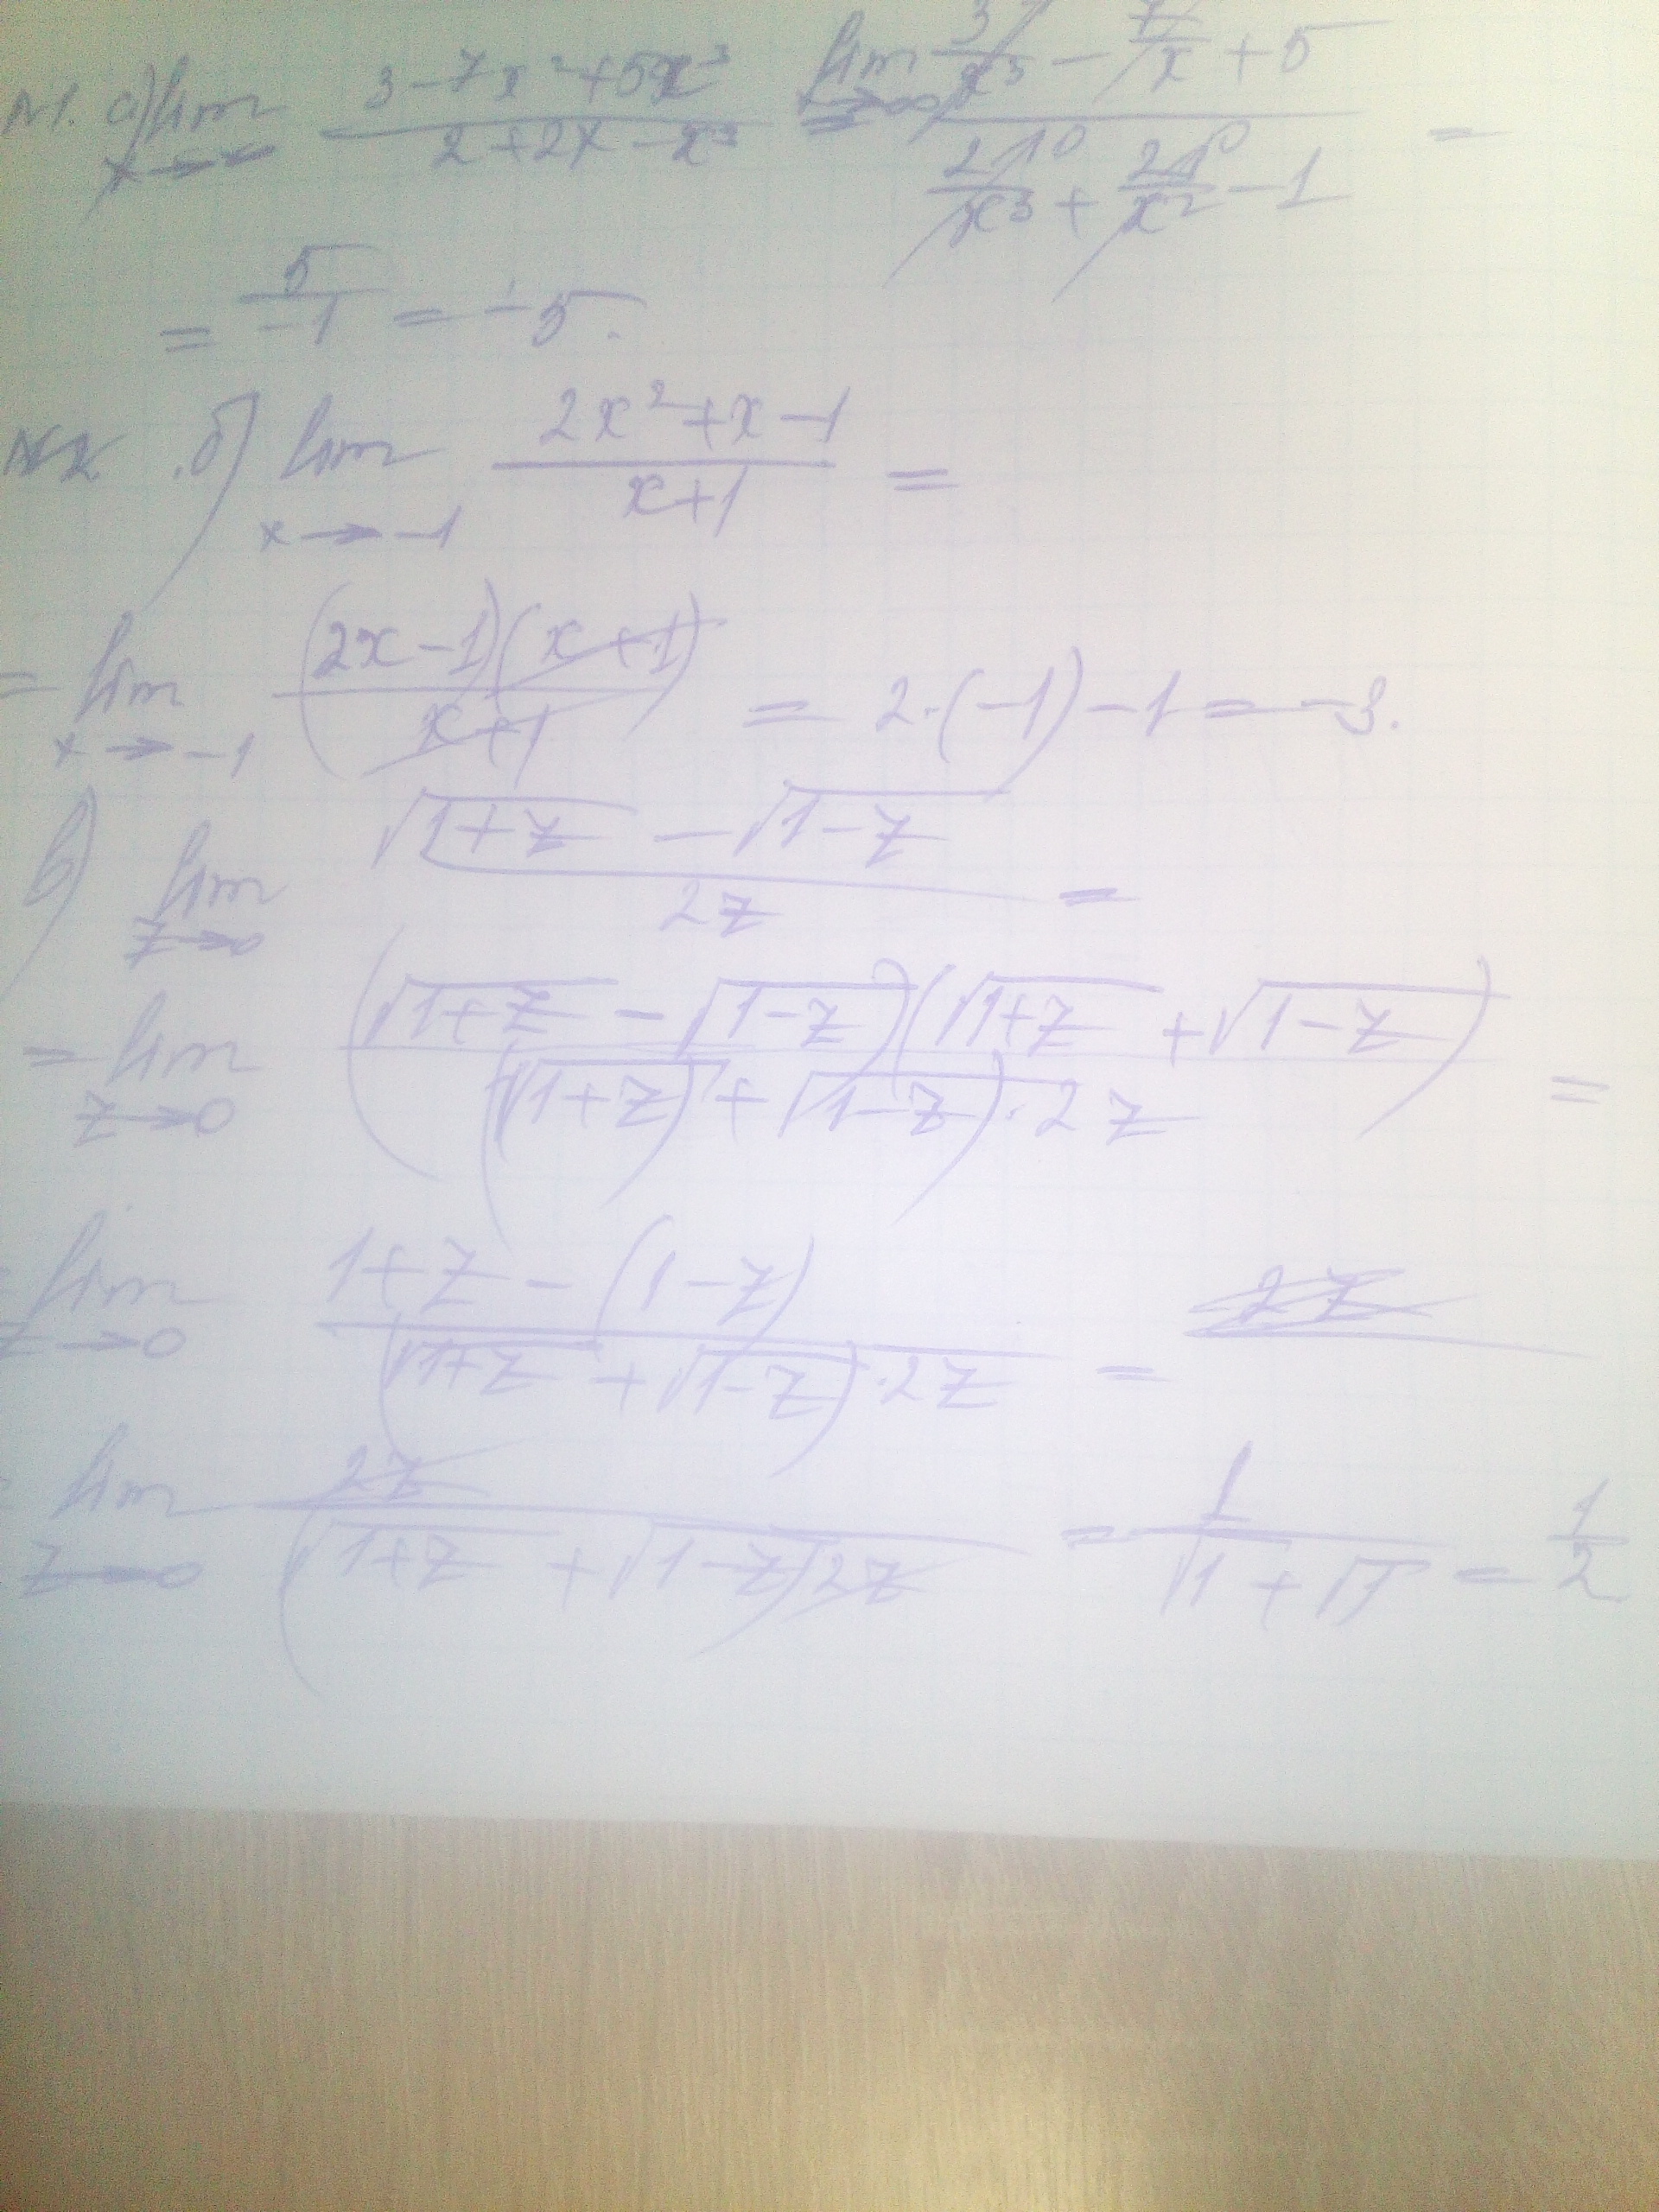 №1. а) lim x→∞ (3-7x²+5x³)/(2+2x-x³) = lim x→∞ (3/x³ - 7/x + 5)/(2/x³ + 2/x² - 1) =
= 5/-1 = -5.
б) lim x→-1 (2x²+x-1)/(x+1) =
= lim x→-1 (2x-1)(x+1)/(x+1) = 2·(-1)-1 = -3.
в) lim z→0 (√(1+z) - √(1-z))/(2z) =
= lim z→0 (√(1+z) - √(1-z))(√(1+z) + √(1-z))/((√(1+z) + √(1-z))·2z) =
= lim z→0 (1+z-(1-z))/((√(1+z) + √(1-z))·2z) =
= lim z→0 2z/((√(1+z) + √(1-z))2z) = 1/(√1+√1) = 1/2